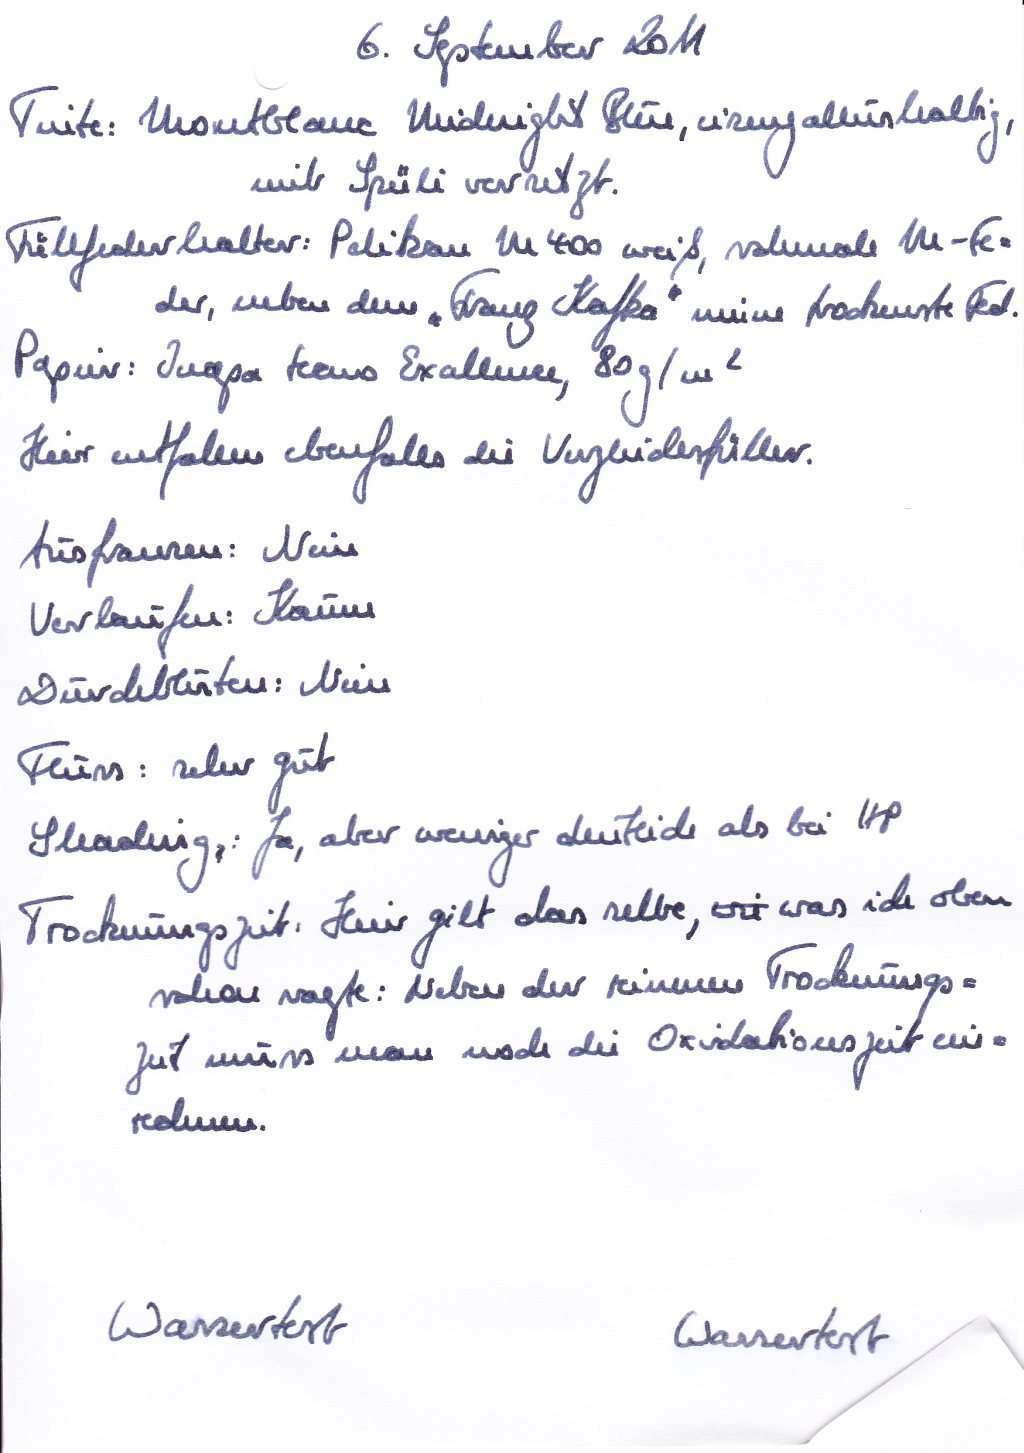 6. September 2011
Tinte: Montblanc Midnight Blue, eisengallushaltig,
mit Spüli versetzt.
Füllfederhalter: Pelikan M 400 weiß, schmale M-Fe=
der, neben dem „Franz Kafka" meine trockenste Fed.
Papier: Inapa tecno Excellence, 80g/m²
Hier entfallen ebenfalls die Vergleichsfüller.
Ausfransen: Nein
Verlaufen: Kaum
Durchbluten: Nein
Fluss: sehr gut
Shading: Ja, aber weniger deutlich als bei HP
Trocknungszeit: Hier gilt das selbe, wie was ich oben
schon sagte: Neben der reinen Trocknungs=
zeit muss man noch die Oxidationszeit ein=
rechnen.
Wassertest Wassertest